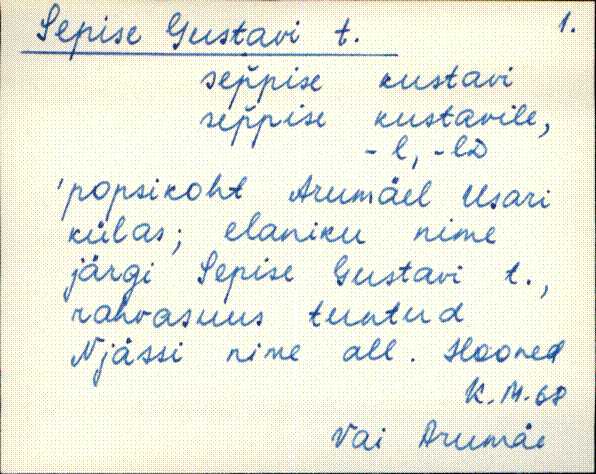 Sepise Gustavi t. 1.
sep̌pise kustavi
sep̌pise kustavile,
-l, -lD
'popsikoht Arumäel Usari
külas; elaniku nime
järgi Sepise Gustavi t.,
rahvasuus tuntud
Njässi nime all. Hooned
K. M. 68
Vai Arumäe